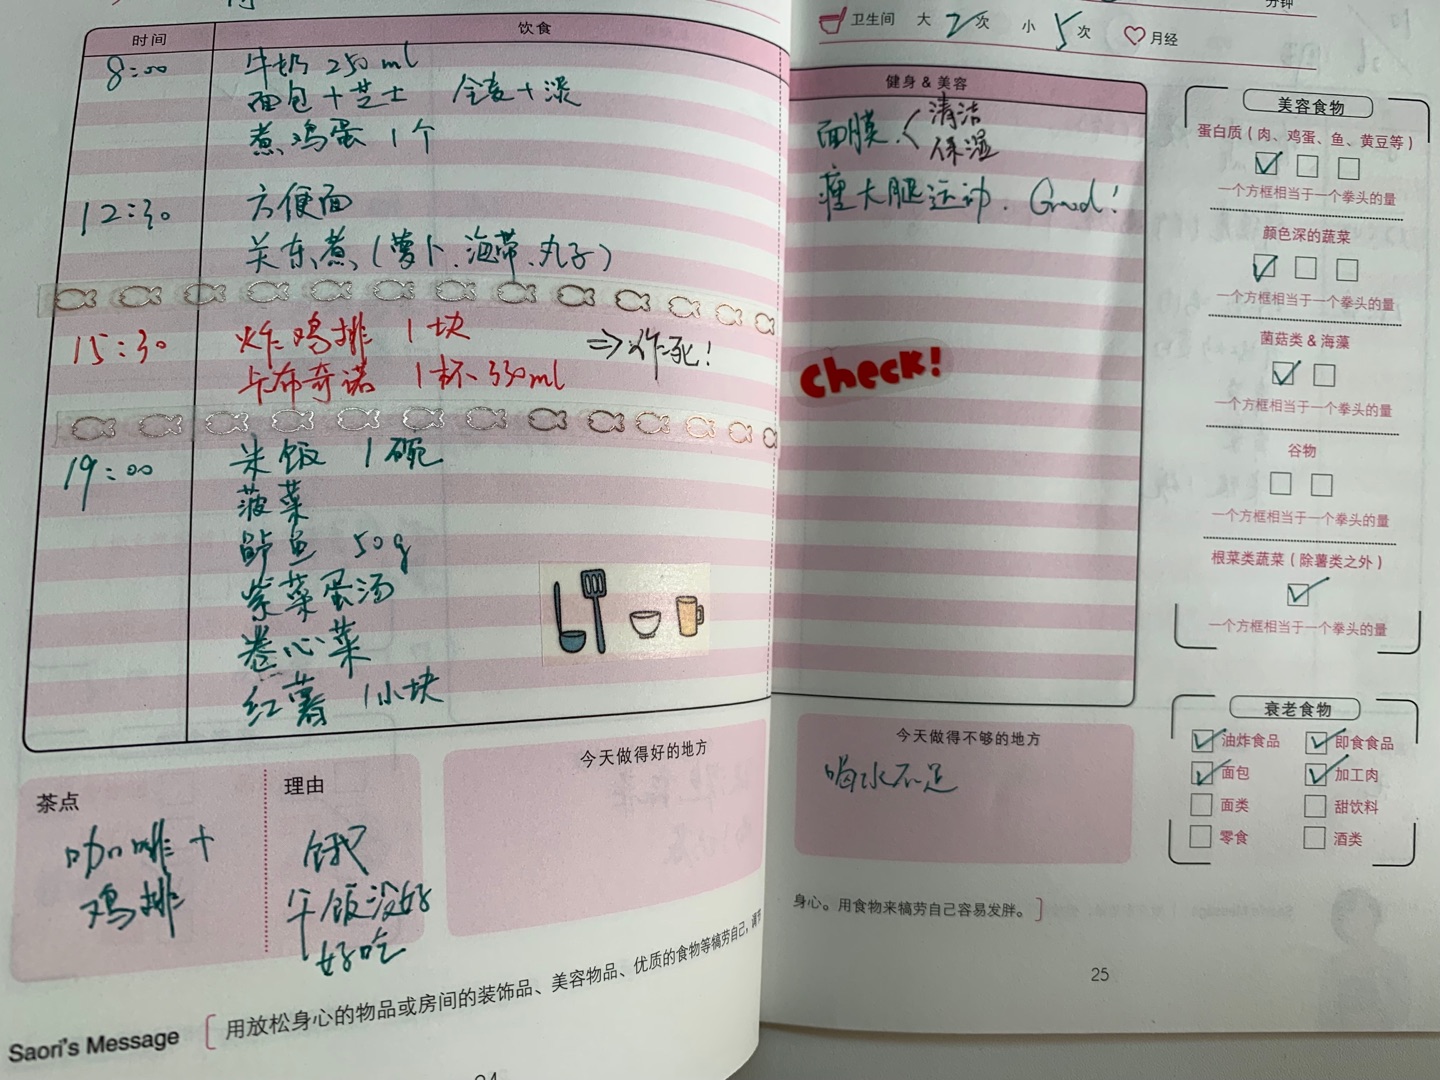 时间 饮食
8:00 牛奶 250 ml
面包+芝士 全麦+深
煮鸡蛋 1个
12:30 方便面
关东煮(萝卜、海带、丸子)
15:30 炸鸡排 1块
卡布奇诺 1杯 330ml
⇒炸死!
19:00 米饭 1碗
菠菜
鲈鱼 50g
紫菜蛋汤
卷心菜
红薯 1小块
茶点
咖啡+
鸡排
理由
饿
午饭没好
好吃
今天做得好的地方
Saori's Message
用放松身心的物品或房间的装饰品、美容物品、优质的食物等犒劳自己,
分钟
卫生间 大 2 次 小 5 次 月经
健身 & 美容
面膜 清洁
保湿
瘦大腿运动. Good!
Check!
今天做得不够的地方
喝水不足
身心。用食物来犒劳自己容易发胖。
25
美容食物
蛋白质(肉、鸡蛋、鱼、黄豆等)
一个方框相当于一个拳头的量
颜色深的蔬菜
一个方框相当于一个拳头的量
菌菇类 & 海藻
一个方框相当于一个拳头的量
谷物
一个方框相当于一个拳头的量
根菜类蔬菜(除薯类之外)
一个方框相当于一个拳头的量
衰老食物
油炸食品 即食食品
面包 加工肉
面类 甜饮料
零食 酒类